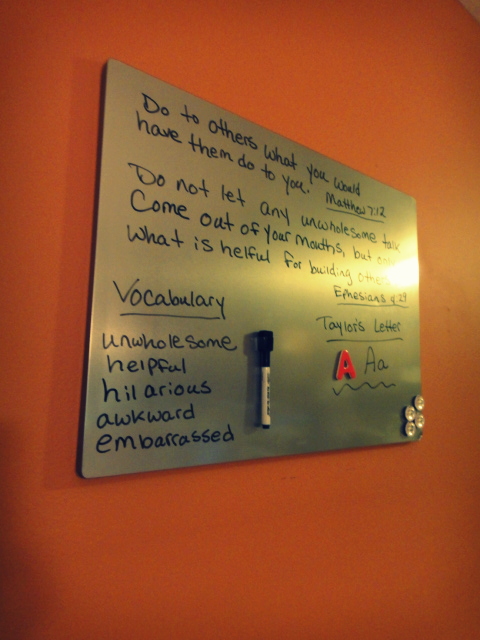 Do to others what you would
have them do to you.
Matthew 7:12
Do not let any unwholesome talk
Come out of your mouths, but
what is helful for building others
Ephesians 4:29
Vocabulary
unwholesome
helpful
hilarious
awkward
embarrassed
Taylor's Letter
A Aa